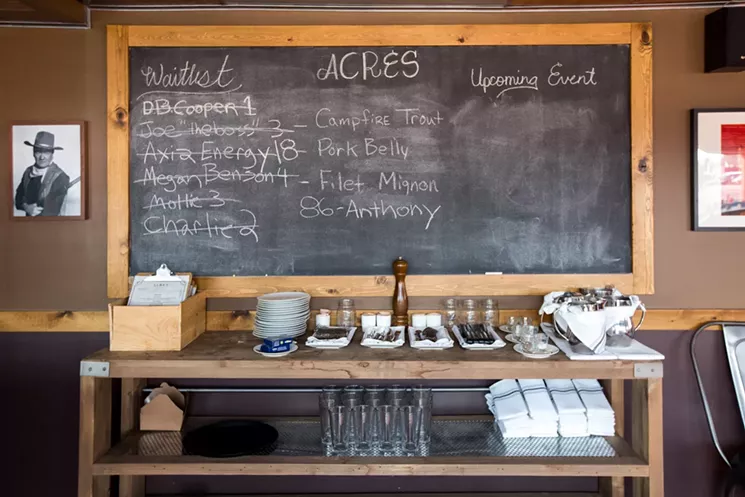 Waitlist
D.B. Cooper 1
Joe "theboss" 3
Axia Energy 18
Megan Benson 4
Mollie 3
Charlie 2
ACRES
- Campfire Trout
- Pork Belly
- Filet Mignon
86-Anthony
Upcoming Event